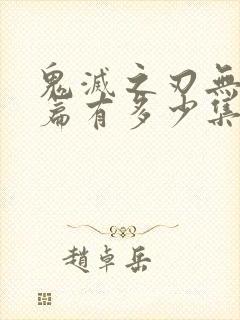 鬼滅之刃無
篇有多少集
趙卓岳